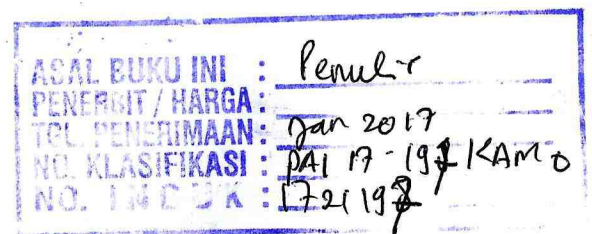 ASAL BUKU INI : Penulis
PENERBIT / HARGA :
TGL. PENERIMAAN : Jan 2017
NO. KLASIFIKASI : PAI 17-197 KAM o
NO. INDUK : 172/197